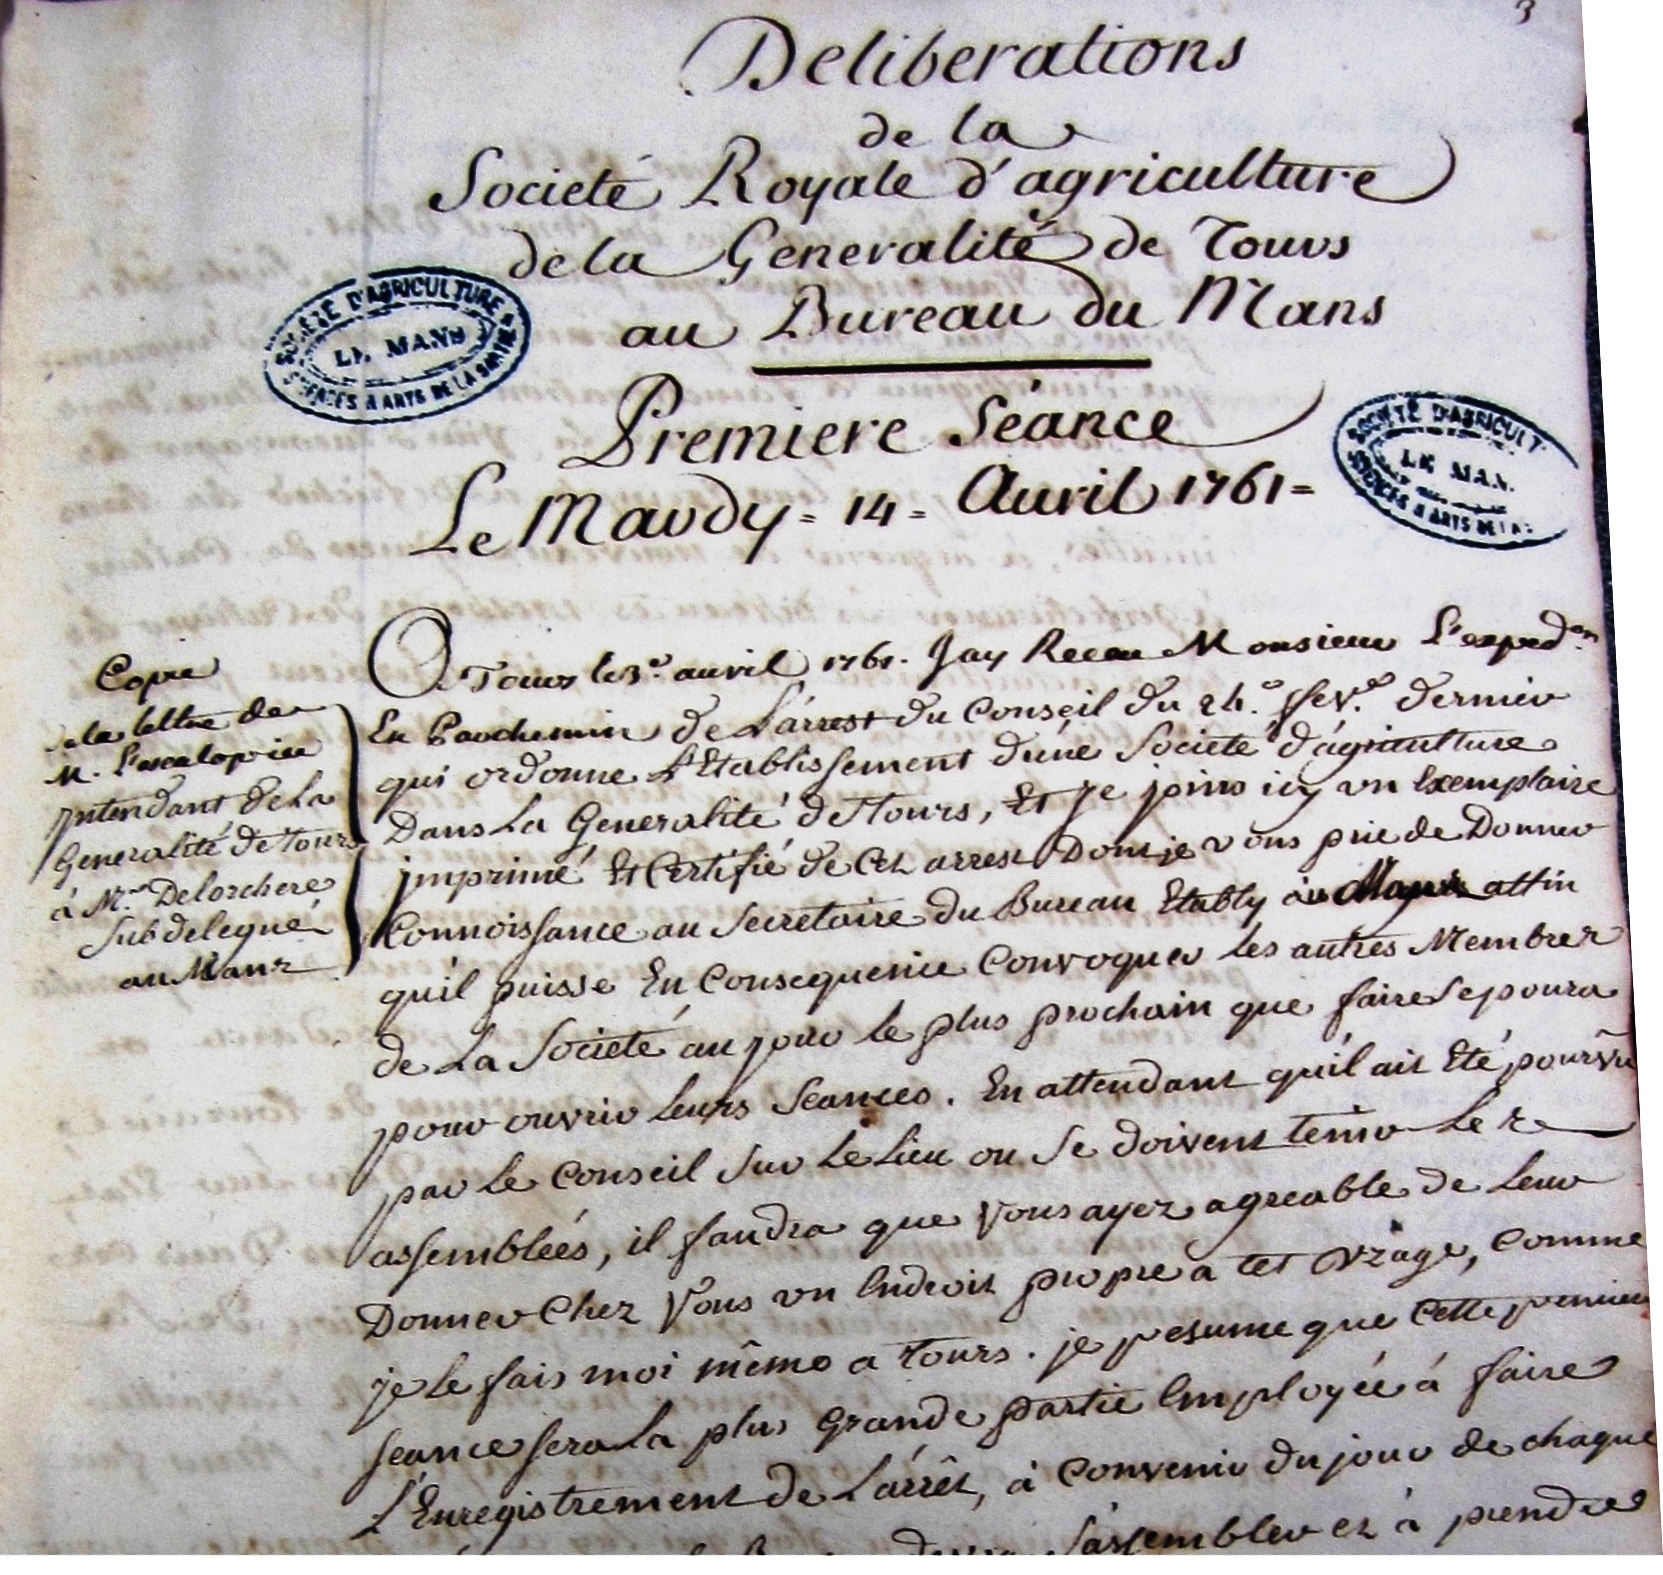 3
Deliberations
de la
Societé Royale d'agriculture
de la Generalité de Tours
au Bureau du Mans
SOCIÉTÉ D'AGRICULTURE
LE MANS
SCIENCES & ARTS DE LA SARTHE
Premiere Séance
Le Mardy = 14 = Auril 1761 =
SOCIÉTÉ D'AGRICULT
LE MAN
SCIENCES & ARTS DE LA
Copie
de la lettre de
M. L'escalopier
Intendant de La
Generalité de Tours
à Mr. Delorchere
Subdelegué
au Mans
A Tours le 3e. auril 1761. Jay Receu Monsieur L'exped.on
En Parchemin de L'arrest du Conseil du 24.e fev.r dernier
qui ordonne L'Etablissement d'une Societé d'agriculture
Dans La Generalité de Tours, Et Je joins icy un Exemplaire
imprimé Et Certifié de Cet arrest Dont je vous prie de Donner
Connoissance au Secretaire du Bureau Etably au Mans affin
qu'il puisse En Consequence Convoquer les autres Membres
de La Societé au jour le plus prochain que faire Se poura
pour ouvrir leurs Seances. En attendant qu'il ait Eté pourvû
par le Conseil Sur Le Lieu ou Se doivent tenir Les
assembleés, il faudra que Vous ayez agreable de Leur
Donner Chez Vous un Endroit propre a Cet Vzage, Comme
je le fais moi même a Tours. je presume que Cette premiere
Seance Sera La plus Grande partie Employée à faire
L'Enregistrement de L'arrêt, à Convenir du jour de chaque
S'assembler et à prendre